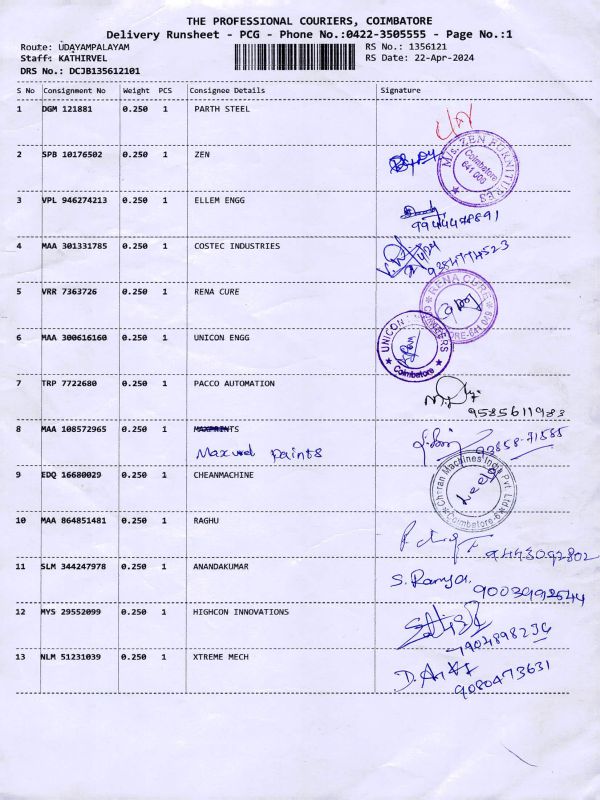 THE PROFESSIONAL COURIERS, COIMBATORE
Delivery Runsheet - PCG - Phone No.:0422-3505555 - Page No.:1
Route: UDAYAMPALAYAM RS No.: 1356121
Staff: KATHIRVEL RS Date: 22-Apr-2024
DRS No.: DCJB135612101
S No Consignment No Weight PCS Consignee Details Signature
1 DGM 121881 0.250 1 PARTH STEEL
2 SPB 10176502 0.250 1 ZEN
M/s. ZEN FURNITURES Coimbatore 641 000
3 VPL 946274213 0.250 1 ELLEM ENGG
9944478891
4 MAA 301331785 0.250 1 COSTEC INDUSTRIES
5 VRR 7363726 0.250 1 RENA CURE
RENA CURE
6 MAA 300616160 0.250 1 UNICON ENGG
UNICON Coimbatore
7 TRP 7722680 0.250 1 PACCO AUTOMATION
9585611983
8 MAA 108572965 0.250 1 MAXPRINTS
Maxved Paints
99858-71585
9 EDQ 16680029 0.250 1 CHEANMACHINE
Cheran Machines India Pvt. Ltd Coimbatore-6
10 MAA 864851481 0.250 1 RAGHU
9443092802
11 SLM 344247978 0.250 1 ANANDAKUMAR
S. Ramya.
12 MYS 29552099 0.250 1 HIGHCON INNOVATIONS
7904898236
13 NLM 51231039 0.250 1 XTREME MECH
9080473631